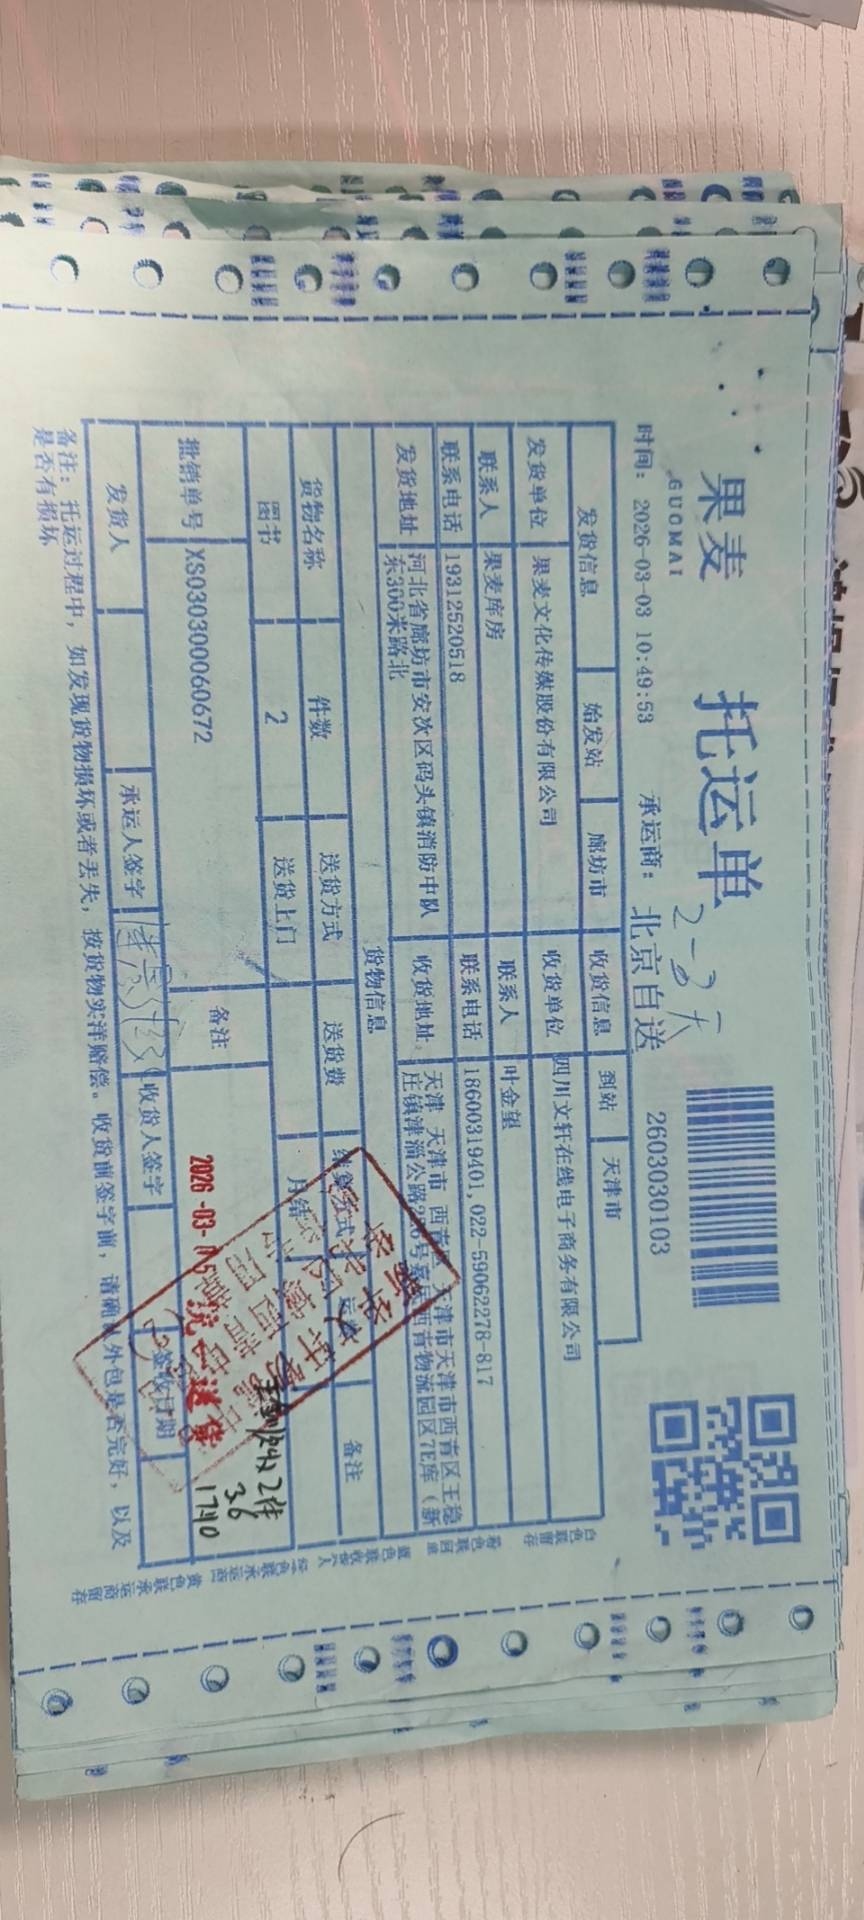 果麦 托运单
GUOMAI
2-3天
时间: 2026-03-03 10:49:53 承运商: 北京自送 2603030103
发货信息 始发站 廊坊市 收货信息 到站 天津市
发货单位 果麦文化传媒股份有限公司 收货单位 四川文轩在线电子商务有限公司
联系人 果麦库房 联系人 叶金望
联系电话 19312520518 联系电话 18600319401,022-59062278-817
发货地址 河北省廊坊市安次区码头镇消防中队东300米路北 收货地址 天津 天津市 西青区 天津市天津市西青区王稳庄镇津淄公路286号嘉民西青物流园区7E库(新
货物信息
货物名称 件数 送货方式 送货费 结算方式 运费 备注
图书 2 送货上门 月结
批销单号 XS030300060672 备注
2026-03-05
实收2件
3.6
17:40
发货人 承运人签字 收货人签字 签收日期
备注: 托运过程中, 如发现货物损坏或者丢失, 按货物实洋赔偿。收货前签字前, 请确认外包是否完好, 以及
是否有损坏
白色联留存 粉色联回单 蓝色联收货人 绿色联承运商 黄色联承运商留存